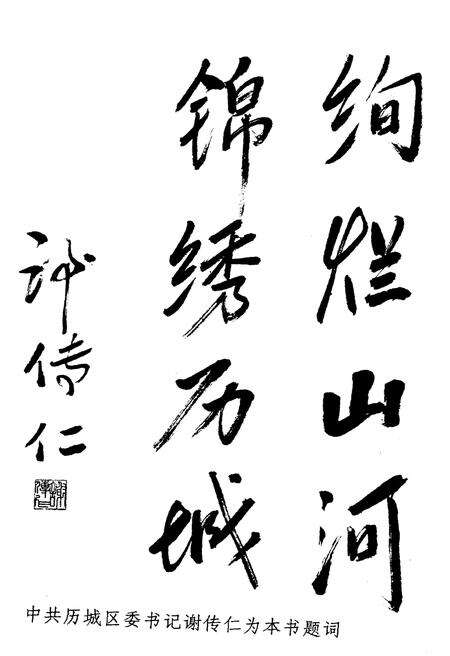 绚烂山河
锦绣历城
谢传仁
中共历城区委书记谢传仁为本书题词